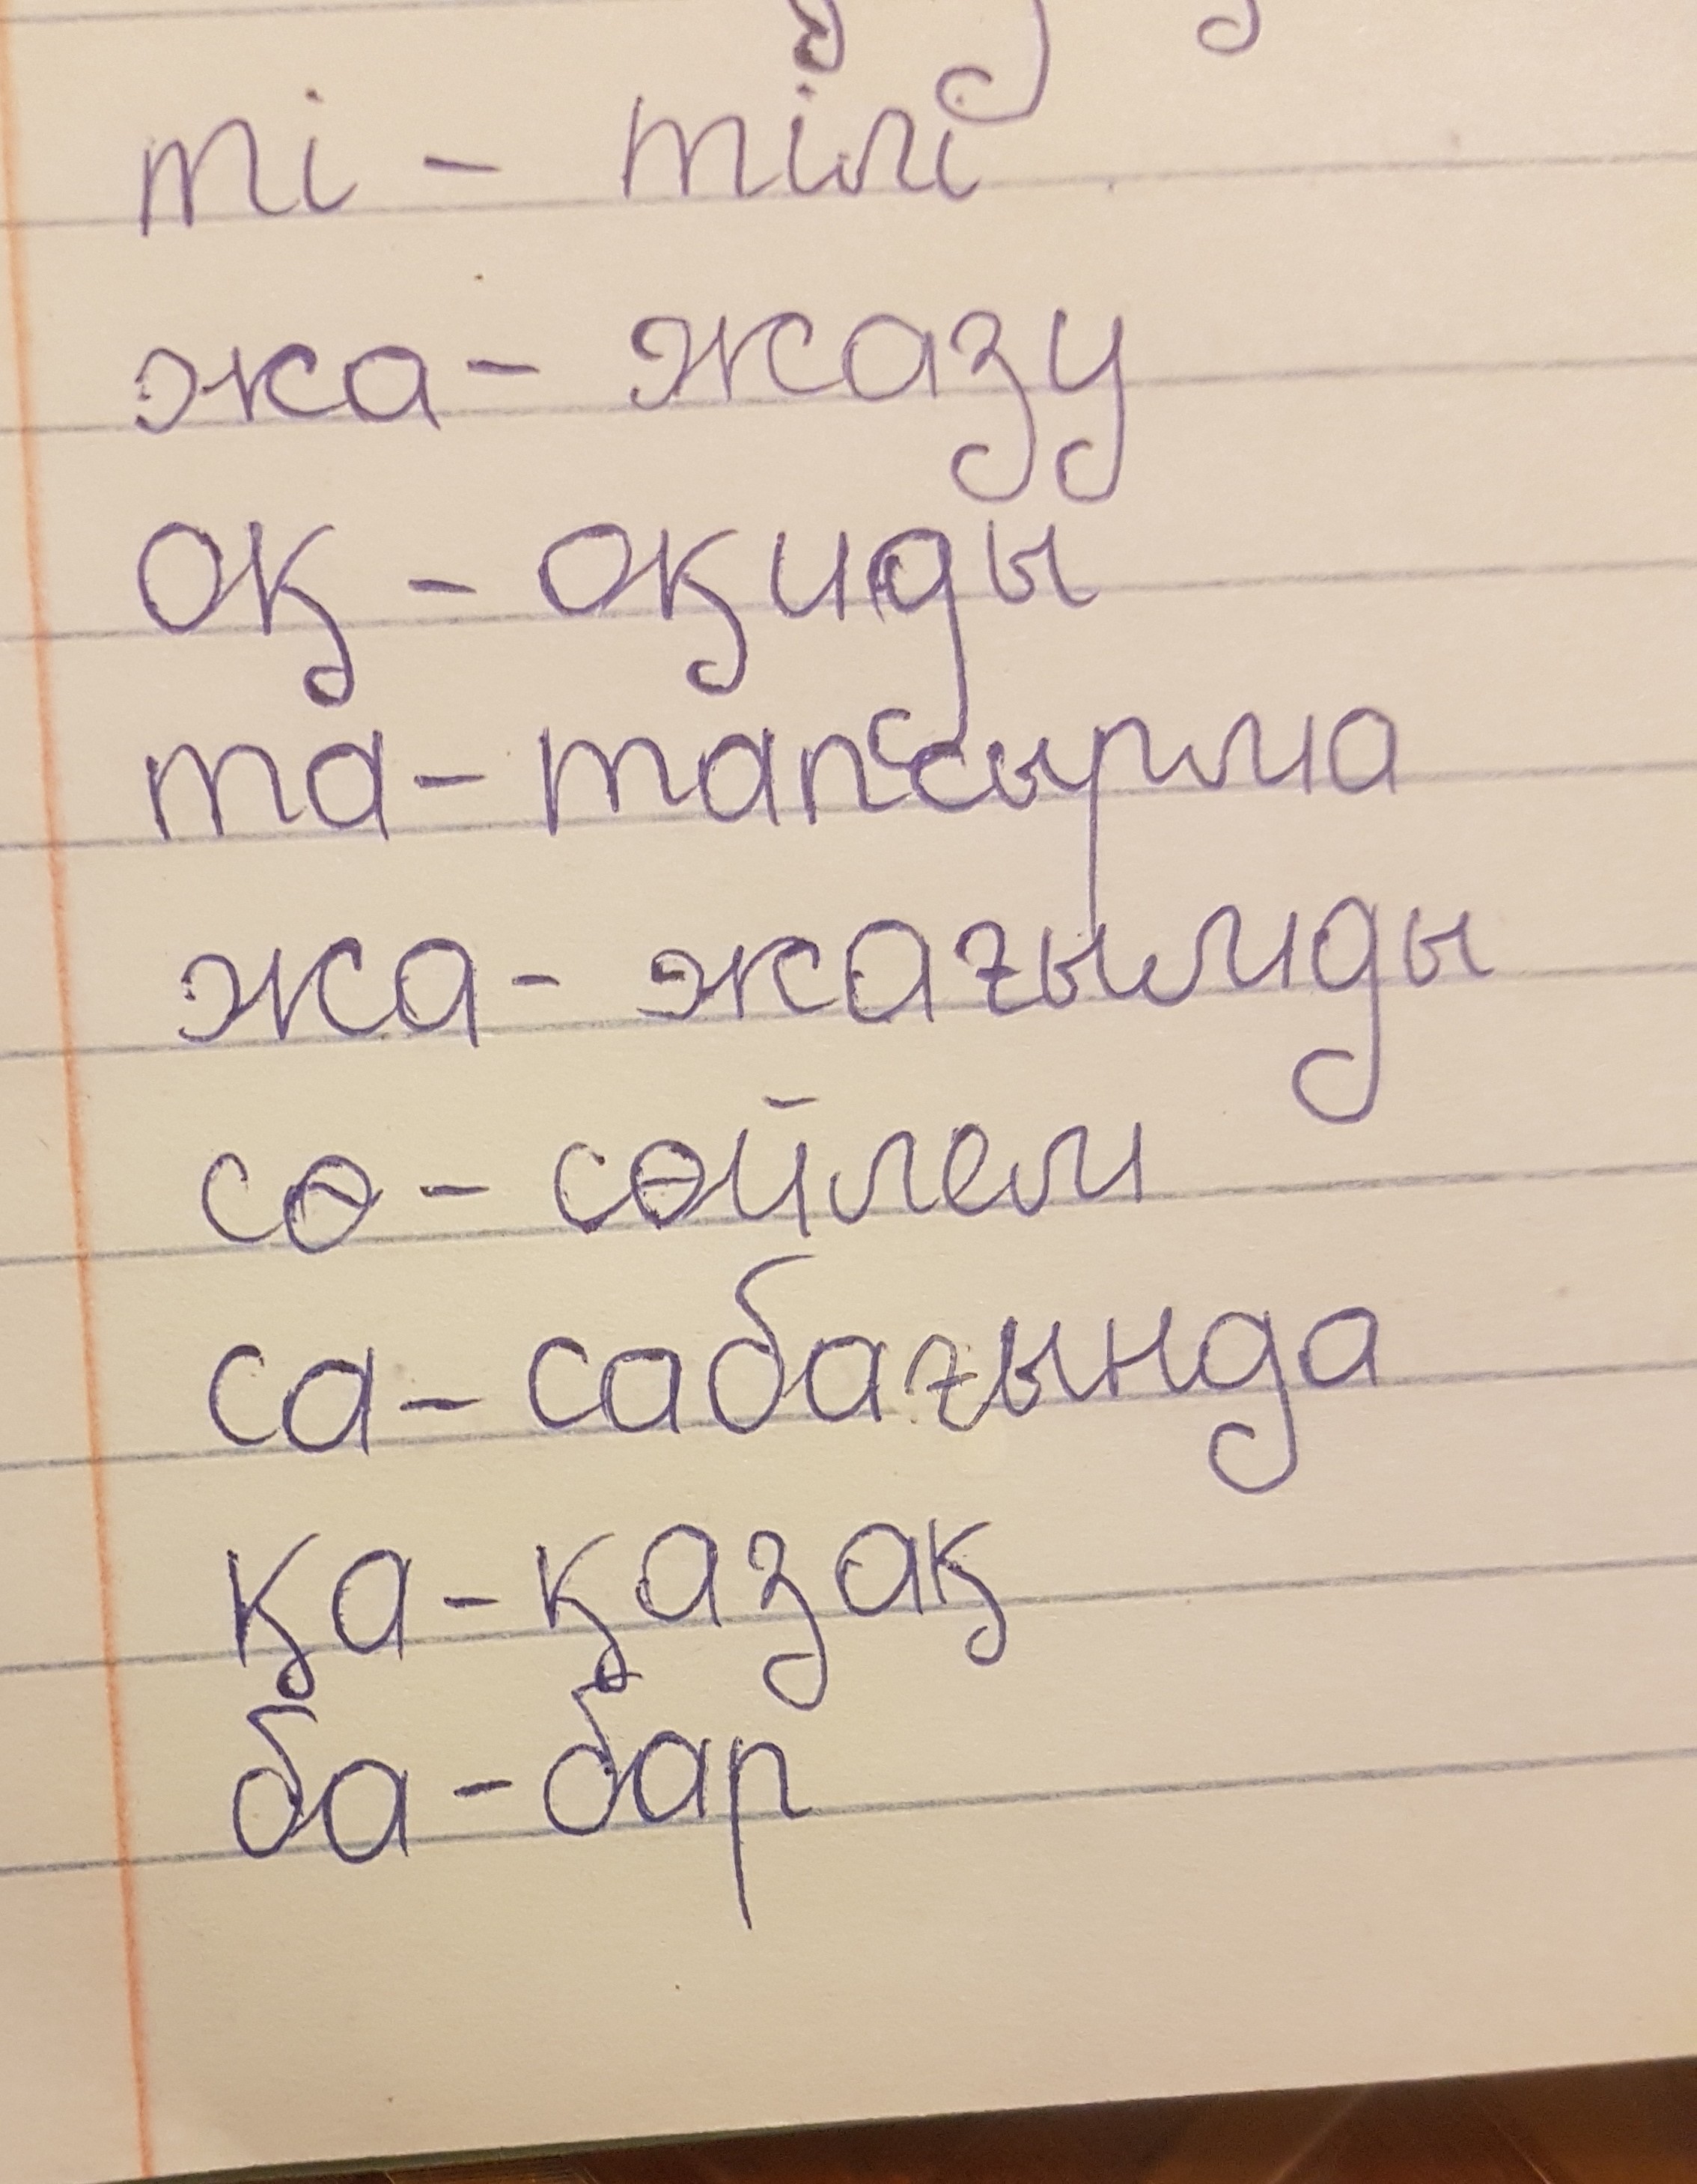 ті - тілі
жа - жазу
оқ - оқиды
та - тапсырма
жа - жағымды
сө - сөйлем
са - сабағында
қа - қазақ
ба - бар